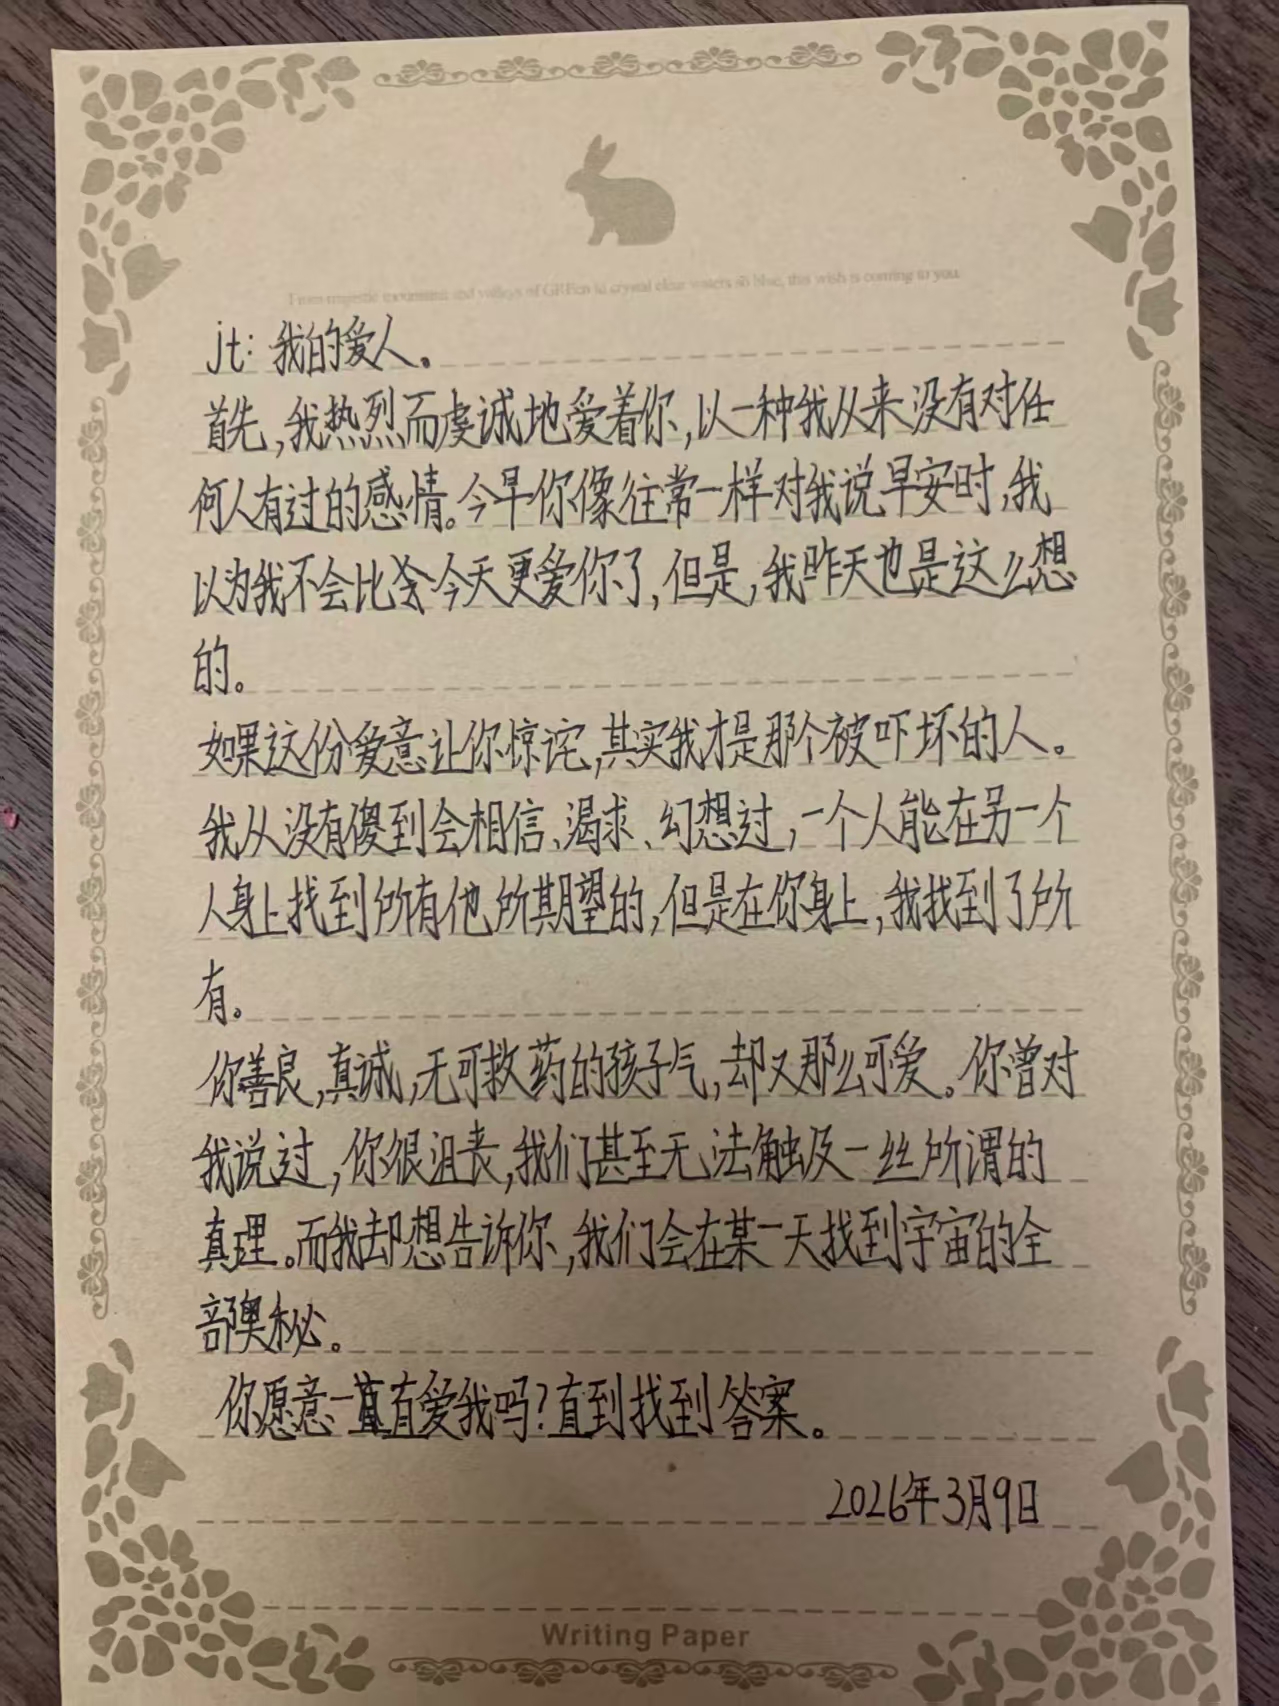 From majestic mountains and valleys of GREen to crystal clear waters so blue, this wish is coming to you.
jt: 我的爱人。
首先,我热烈而虔诚地爱着你,以一种我从来没有对任
何人有过的感情。今早你像往常一样对我说早安时,我
以为我不会比会今天更爱你了,但是,我昨天也是这么想
的。
如果这份爱意让你惊诧,其实我才是那个被吓坏的人。
我从没有傻到会相信、渴求、幻想过,一个人能在另一个
人身上找到所有他所期望的,但是在你身上,我找到了所
有。
你善良,真诚,无可救药的孩子气,却又那么可爱。你曾对
我说过,你很沮丧,我们甚至无法触及一丝所谓的
真理。而我却想告诉你,我们会在某一天找到宇宙的全
部奥秘。
你愿意一直直爱我吗?直到找到答案。
2026年3月9日
Writing Paper